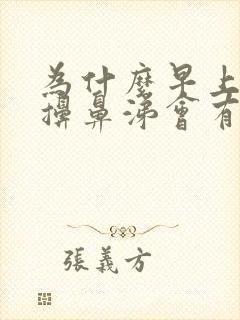 為什麼早上
擤鼻涕會有
張義方